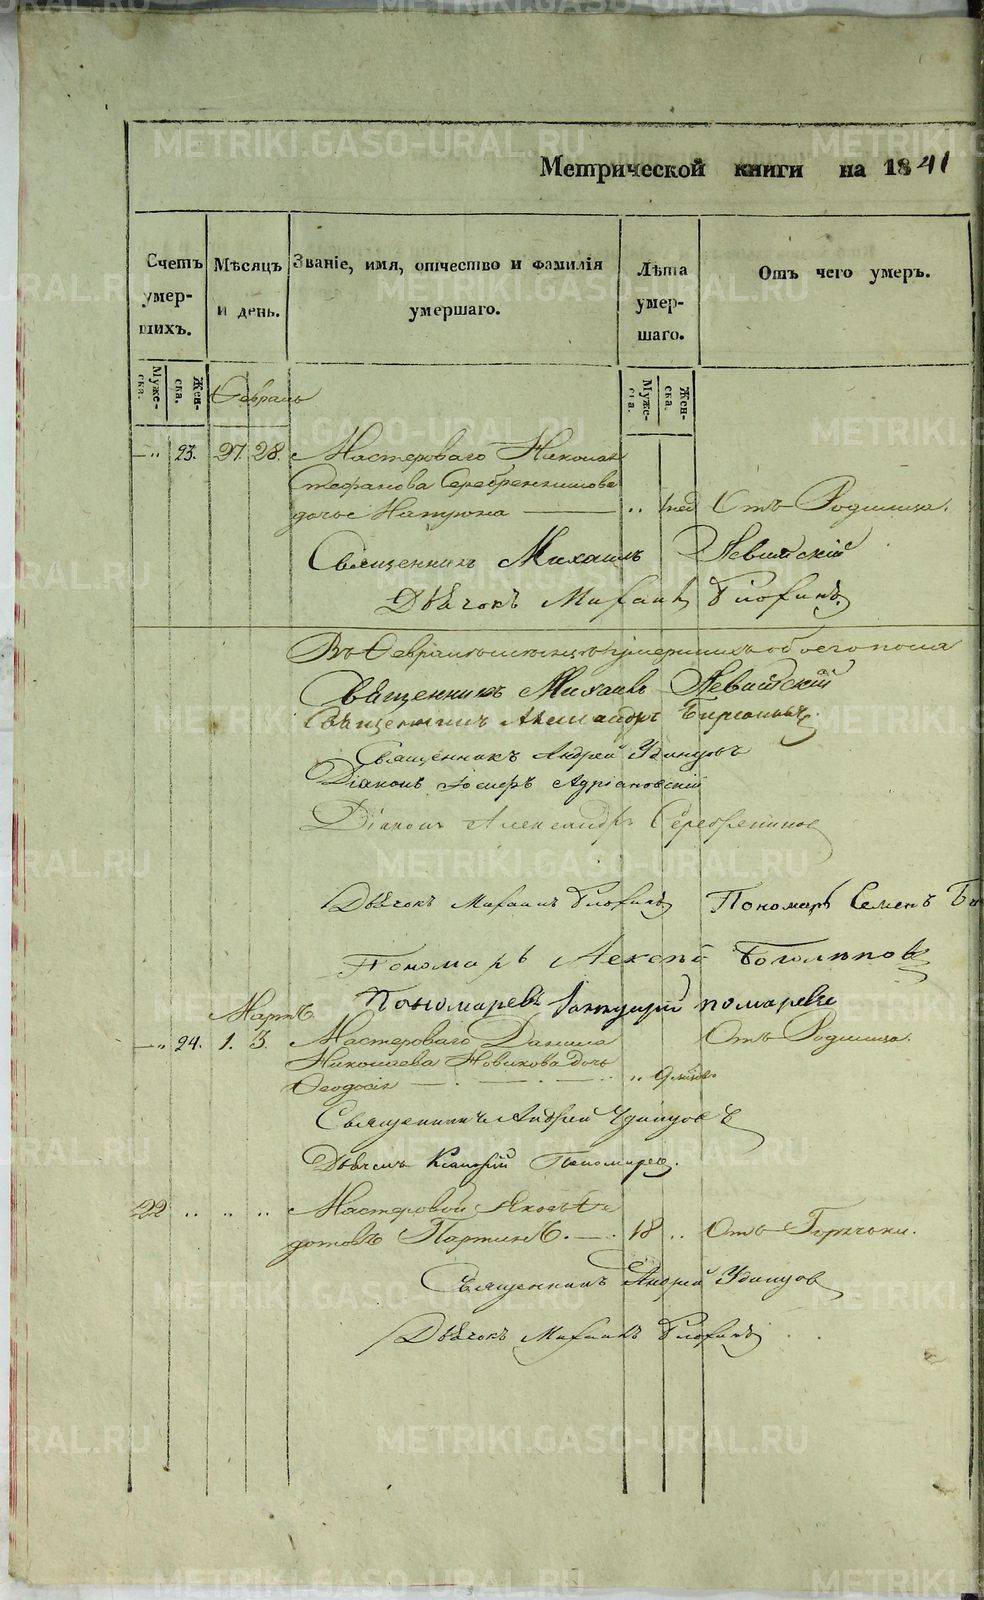 METRIKI.GASO-URAL.RU
Метрической книги на 1841
Счетъ умер- шихъ.
Мѣсяцъ и день.
Званіе, имя, отчество и фамилія умершаго.
Лѣта умер- шаго.
Отъ чего умеръ.
Муже- ска. Жен- ска.
Муже- ска. Жен- ска.
Февраль
—„ 23. 27. 28. Мастероваго Николая
Стефанова Серебренникова
дочь —— „ 1 нед Отъ Родимца.
Священникъ Михаилъ Левитскій
Дьячокъ Михаилъ
Въ Февралѣ мѣсяцѣ умершихъ обоего пола
Священникъ Михаилъ Левитскій
Священникъ Александръ
Священникъ Андрей Удинцовъ
Діаконъ Іосифъ Адріановскій
Діаконъ Александръ Серебренниковъ
Дьячокъ Михаилъ Пономарь Семенъ
Пономарь Алексѣй Боголѣповъ
Пономаревъ
Мартъ
—„ 24. 1. 3. Мастероваго Данила Отъ Родимца.
Николаева Новикова дочь
Феодосія — „ 9
Священникъ Андрей Удинцовъ
Дьячекъ Пономаревъ.
22 „ „ „ Мастеровой Яковъ Фе
дотовъ — 18 „ Отъ Горячки.
Священникъ Андрей Удинцов
Дьячокъ Михаилъ